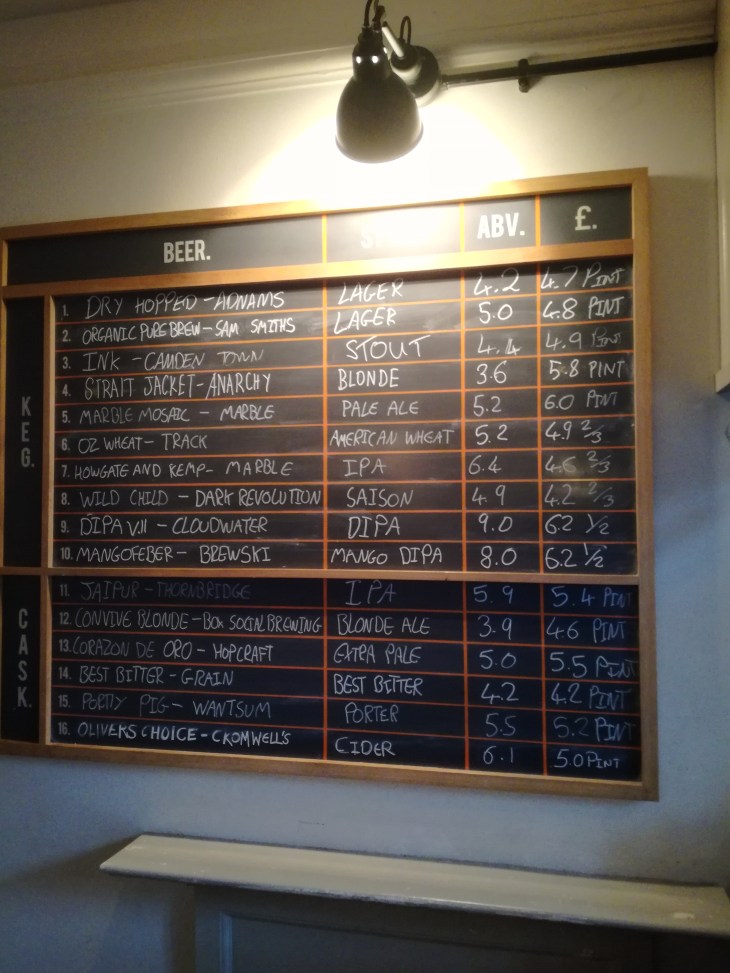 BEER. ABV. £.
KEG.
1. DRY HOPPED - ADNAMS LAGER 4.2 4.7 PINT
2. ORGANIC PURE BREW - SAM SMITHS LAGER 5.0 4.8 PINT
3. INK - CAMDEN TOWN STOUT 4.4 4.9 PINT
4. STRAIT JACKET - ANARCHY BLONDE 3.6 5.8 PINT
5. MARBLE MOSAIC - MARBLE PALE ALE 5.2 6.0 PINT
6. OZ WHEAT - TRACK AMERICAN WHEAT 5.2 4.9 2/3
7. HOWGATE AND KEMP - MARBLE IPA 6.4 4.6 2/3
8. WILD CHILD - DARK REVOLUTION SAISON 4.9 4.2 2/3
9. DIPA V.11 - CLOUDWATER DIPA 9.0 6.2 1/2
10. MANGOFEBER - BREWSKI MANGO DIPA 8.0 6.2 1/2
CASK.
11. JAIPUR - THORNBRIDGE IPA 5.9 5.4 PINT
12. CONVIVE BLONDE - BOX SOCIAL BREWING BLONDE ALE 3.9 4.6 PINT
13. CORAZON DE ORO - HOPCRAFT EXTRA PALE 5.0 5.5 PINT
14. BEST BITTER - GRAIN BEST BITTER 4.2 4.2 PINT
15. PORTLY PIG - WANTSUM PORTER 5.5 5.2 PINT
16. OLIVERS CHOICE - CROMWELL'S CIDER 6.1 5.0 PINT